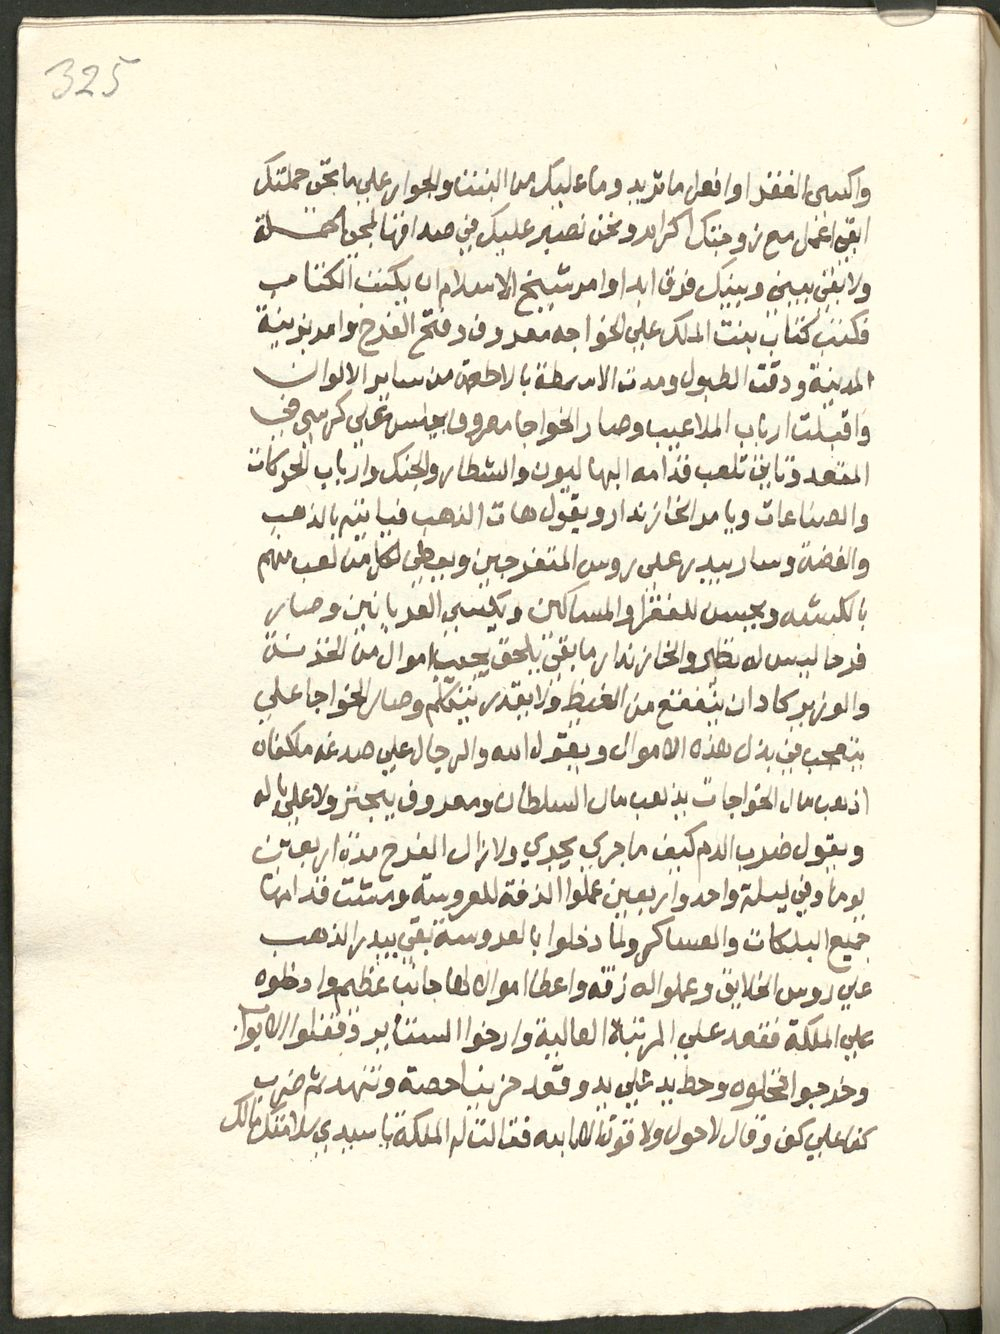 325
واكسي الفقرا وافعل ما تريد وما عليك من البنت والجوار علي ما تجي حملتك
ابقي اعمل مع زوجتك اكرام ونحن نصير عليك في صداقها لمجي الحملة
ولا بقي بيني وبينك فرق ابدا وامر شيخ الاسلام ان يكتب الكتاب
فكتب كتاب بنت الملك علي الخواجه معروف وفتح الفرح وامر بزينة
المدينة ودقت الطبول ومدت الاسمطة بالاطعمة من ساير الالوان
واقبلت ارباب الملاعيب وصار الخواجا معروف يجلس علي كرسي في
المقعد وتاتي تلعب قدامه البهاليون والشطار والجنك وارباب الحركات
والصناعات ويامر الخازندار ويقول هات الذهب فياتيه بالذهب
والفضة وسار يبدر علي روس المتفرجين ويعطي لكل من لعب منهم
بالكبشه ويحسن للفقرا والمساكين ويكسي العريانين وصار
فرحا ليس له نظير والخازندار ما بقي يلحق يجيب اموال من الخزنة
والوزير كاد ان يتفقع من الغيظ ولا يقدر يتكلم وصار الخواجا علي
يتعجب في بذل هذه الاموال ويقول الله والرجال علي صدغه ما كفاه
اذهب مال الخواجات يذهب مال السلطان ومعروف يبحتر ولا علي باله
ويقول ضرب الدم كيف ما جري يجري ولا زال الفرح مدة اربعين
يوما وفي ليلة واحد واربعين عملوا الزفة للعروسة ومشت قدامها
جميع البلكات والعساكر ولما دخلوا بالعروسة بقي يبدر الذهب
علي روس الخلايق وعملوا له زفه واعطا اموالا لها جانب عظيم وادخلوه
علي الملكة فقعد علي المرتبة العالية وارخوا الستاير وقفلوا الابواب
وخرجوا فخلوه وحط يد علي يد وقعد حزينا حصة وتنهد ثم ضرب
كفا علي كف وقال لا حول ولا قوة الا بالله فقالت له الملكة يا سيدي سلامتك مالك